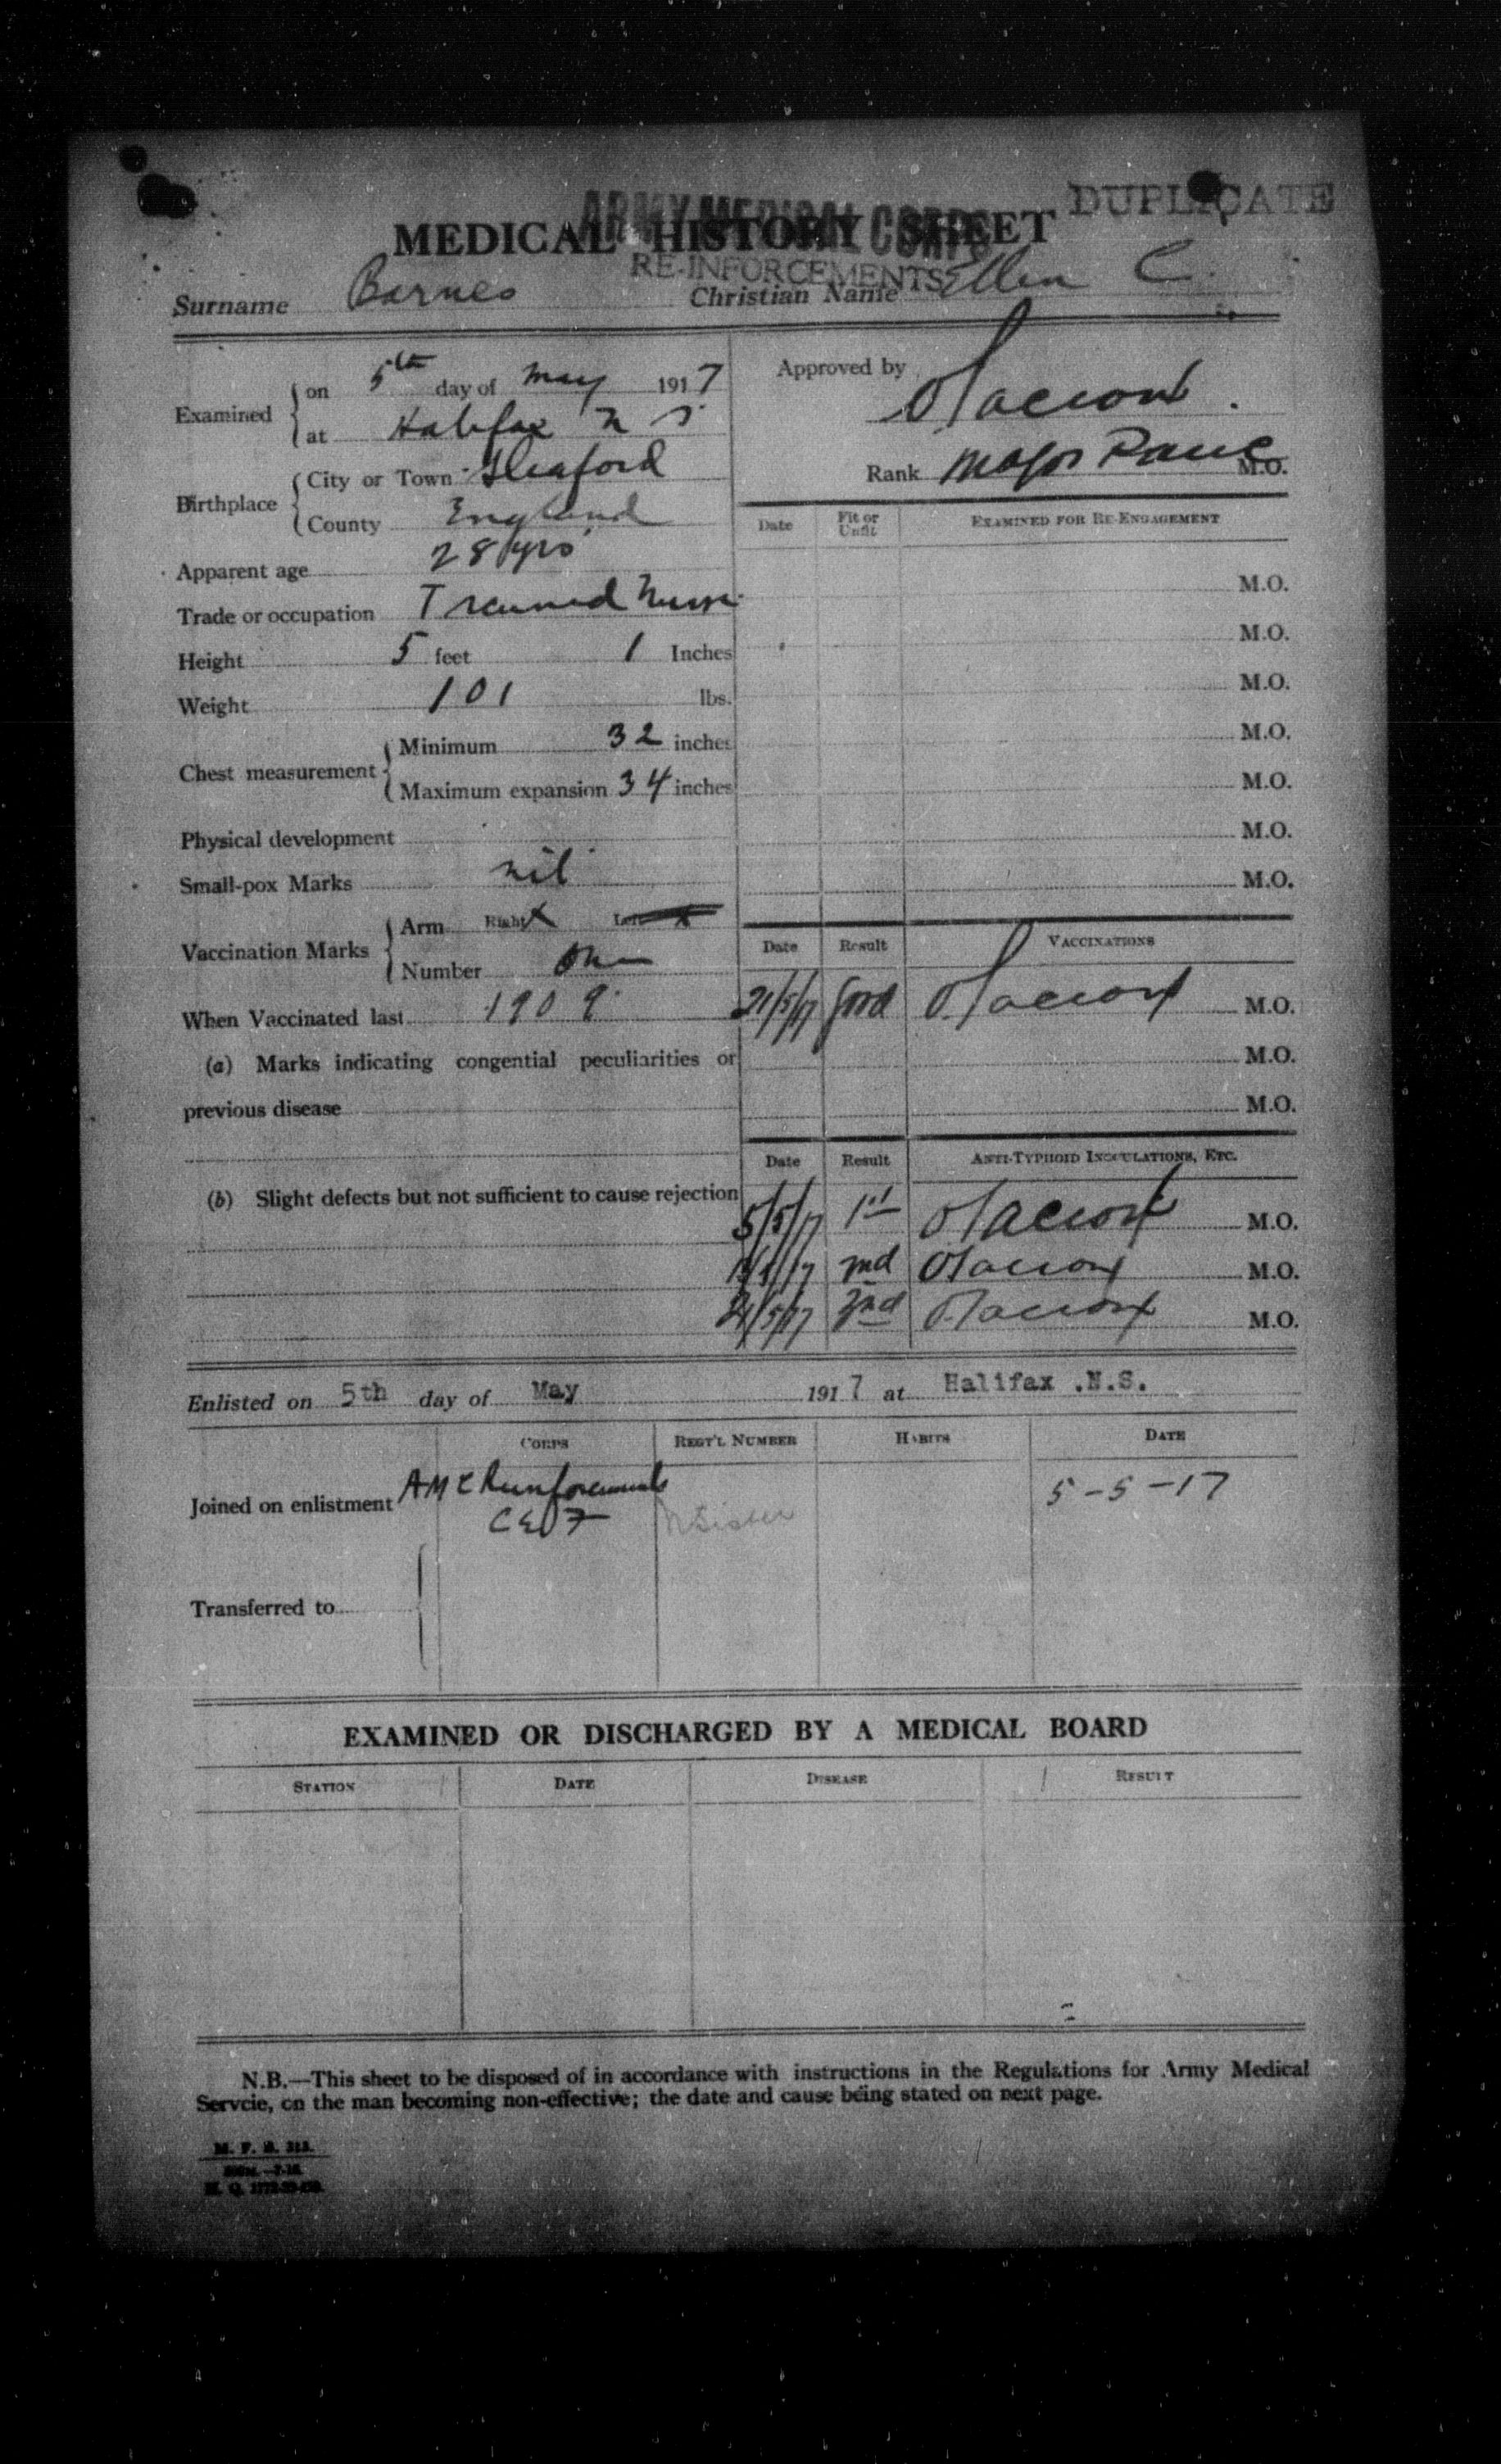 DUPLICATE
ARMY MEDICAL CORPS
MEDICAL HISTORY SHEET
RE-INFORCEMENTS
Surname Barnes Christian Name Ellen C.
Examined on 5th day of May 1917
at Halifax N S
Approved by
Rank Major M.O.
Birthplace City or Town Sleaford
County England
Apparent age 28 yrs
Trade or occupation Trained Nurse
Height 5 feet 1 Inches
Weight 101 lbs.
Chest measurement Minimum 32 inches
Maximum expansion 34 inches
Physical development
Small-pox Marks nil
Vaccination Marks Arm Right X Left X
Number One
When Vaccinated last 1909
(a) Marks indicating congential peculiarities or
previous disease
(b) Slight defects but not sufficient to cause rejection
Date Fit or Unfit EXAMINED FOR RE-ENGAGEMENT
M.O.
M.O.
M.O.
M.O.
M.O.
M.O.
M.O.
Date Result VACCINATIONS
21/5/17 good M.O.
M.O.
M.O.
Date Result ANTI-TYPHOID INOCULATIONS, ETC.
5/5/17 1st M.O.
2nd M.O.
21/5/17 3rd M.O.
Enlisted on 5th day of May 1917 at Halifax .N.S.
CORPS REGT'L NUMBER HABITS DATE
Joined on enlistment AMC Reinforcements 5-5-17
CEF N Sister
Transferred to
EXAMINED OR DISCHARGED BY A MEDICAL BOARD
STATION DATE DISEASE RESULT
N.B.—This sheet to be disposed of in accordance with instructions in the Regulations for Army Medical
Servcie, on the man becoming non-effective; the date and cause being stated on next page.
M. F. B. 313.